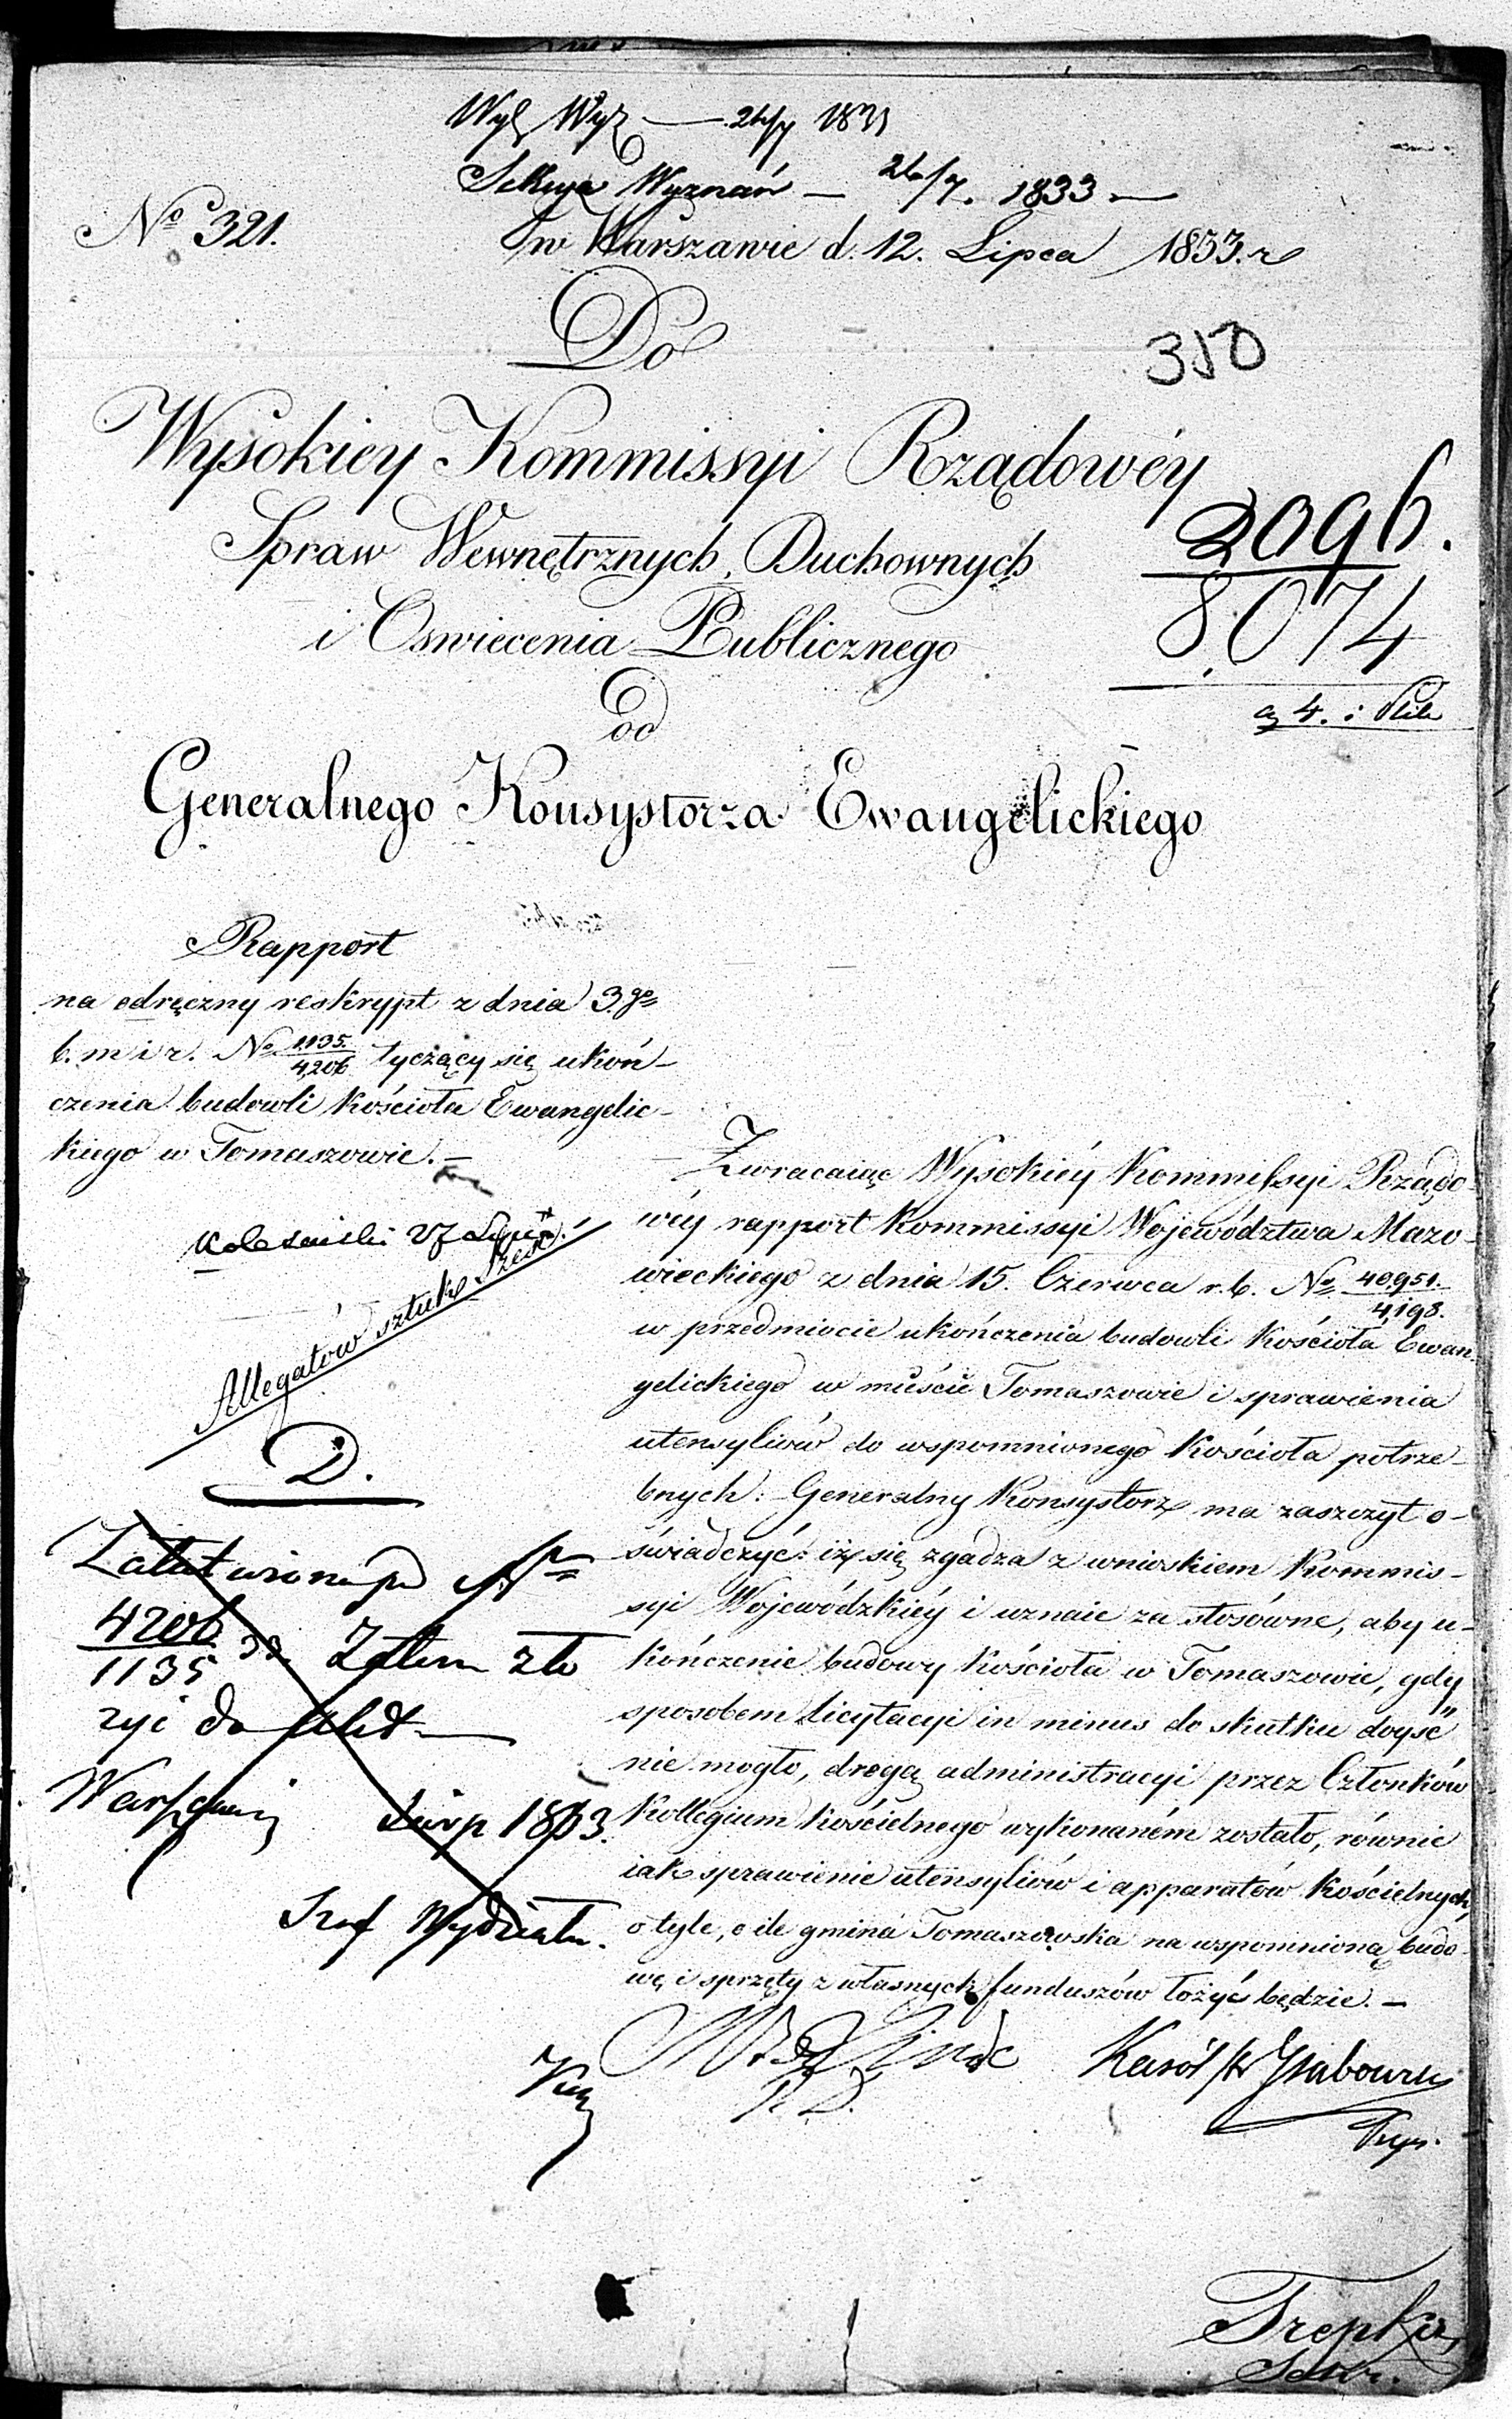 Wyż 26/7 1833
Sekcya Wyznań — 26/7. 1833 —
No 321.
w Warszawie d. 12. Lipca 1833. r
Do
350
Wysokiey Kommissyi Rządowéy
2096.
Spraw Wewnętrznych, Duchownych
8,074
i Oswiecenia Publicznego
4. i
od
Generalnego Konsystorza Ewangelickiego
Rapport
na odręczny reskrypt z dnia 3.go
b. m i r. No 1135./4,206 tyczący się ukoń-
czenia budowli kościoła Ewangelic-
kiego w Tomaszowie. —
27
Allegatów sztuk Sześć.
D.
Załatwiono pod No
4206/1135 Zatem zło
żyć do Akt —
Warszawa 1833.
Szef Wydziału.
Zwracaiąc Wysokiéy Kommissyi Rządo-
wéy rapport Kommissyi Województwa Mazo-
wieckiego z dnia 15. Czerwca r. b. No 40,951./4,198.
w przedmiocie ukończenia budowli kościoła Ewan-
gelickiego w mieście Tomaszowie i sprawienia
utensyliów do wspomnionego kościoła potrze-
bnych: Generalny Konsystorz ma zaszczyt o-
świadczyć: iż się zgadza z wnioskiem Kommis-
syi Wojewódzkiéy i uznaie za stosówne, aby u-
kończenie budowy kościoła w Tomaszowie, gdy
sposobem licytacyi in minus do skutku doyść
nie mogło, drogą administracyi przez Członków
Kollegium kościelnego wykonaném zostało, równie
iak sprawienie utensyliów i apparatów kościelnych,
o tyle, o ile gmina Tomaszowska na wspomnioną budo-
wę i sprzęty z własnych funduszów łożyć będzie. —
Karól
Trepka
Sekr.